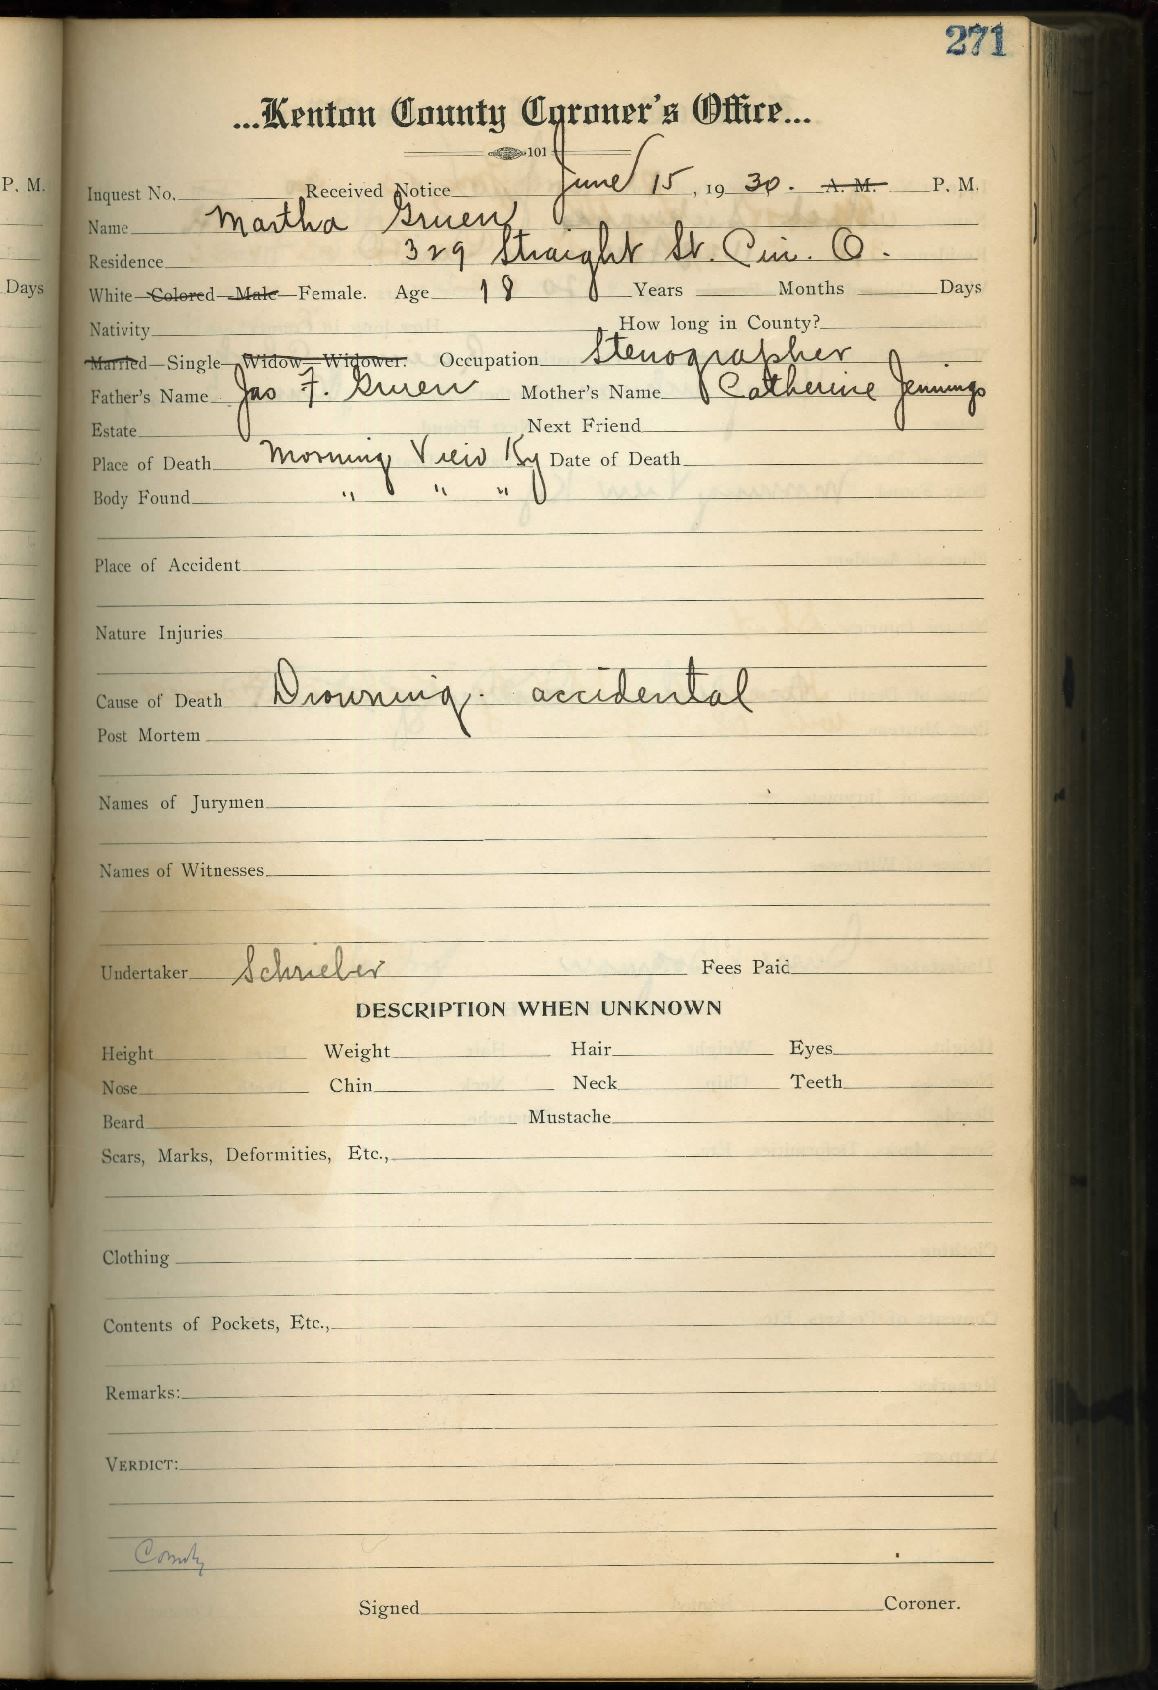 271
P. M.
...Kenton County Coroner's Office...
101
Inquest No. Received Notice June 15, 1930. A. M. P. M.
Name Martha Gruen
Residence 329 Straight St. Cin. O.
Days
White—Colored—Male—Female. Age 18 Years Months Days
Nativity How long in County?
Married—Single—Widow—Widower. Occupation Stenographer
Father's Name Jas F. Gruen Mother's Name Catherine Jennings
Estate Next Friend
Place of Death Morning View Ky Date of Death
Body Found " " "
Place of Accident
Nature Injuries
Cause of Death Drowning. accidental
Post Mortem
Names of Jurymen
Names of Witnesses
Undertaker Schrieber Fees Paid
DESCRIPTION WHEN UNKNOWN
Height Weight Hair Eyes
Nose Chin Neck Teeth
Beard Mustache
Scars, Marks, Deformities, Etc.,
Clothing
Contents of Pockets, Etc.,
Remarks:
VERDICT:
County
Signed Coroner.